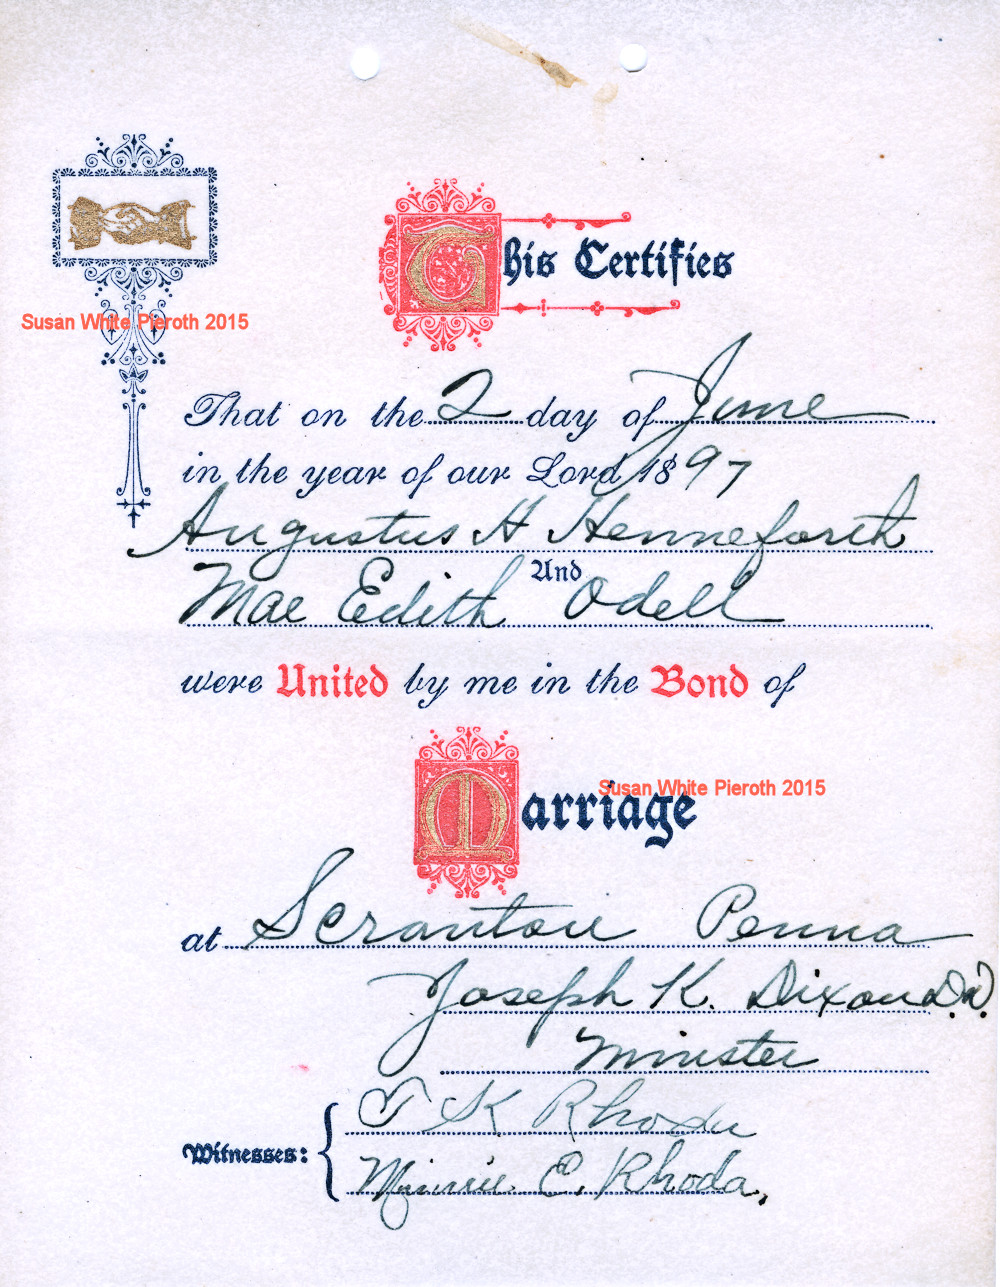 This Certifies
Susan White Pieroth 2015
That on the 2 day of June
in the year of our Lord 1897
Augustus H Henneforth
And
Mae Edith Odell
were United by me in the Bond of
Susan White Pieroth 2015
Marriage
at Scranton Penna
Joseph K. Dixon D.D.
Minister
T K Rhoda
Witnesses:
Minnie E. Rhoda,